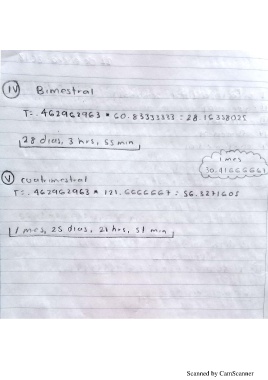 IV Bimestral
T= .462962963 * 60.83333333 = 28.16338025
28 dias, 3 hrs, 55 min
1 mes
30.41666667
V cuatrimestral
T= .462962963 * 121.6666667 = 56.3271605
1 mes, 25 dias, 21 hrs, 51 min
Scanned by CamScanner